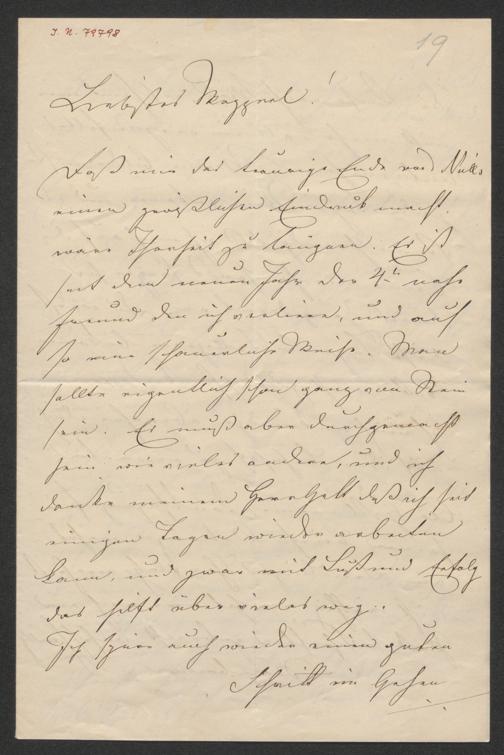 J. N. 79798
19
Liebstes Mopperl!
Daß mir das traurige Ende von Nulls
einen gräßlichen Eindruck macht
wäre Thorheit zu läugnen. Es ist
seit dem neuen Jahr der 4te nahe
Freund den ich verliere, und auf
so eine schauerliche Weise. Man
sollte eigentlich schon ganz von Stein
sein. Es muß aber durchgemacht
sein wie vieles andere, und ich
danke meinem Herrn Gott daß ich seit
einigen Tagen wieder arbeiten
kann, und zwar mit Lust und Erfolg
das hilft über vieles weg.
Ich spüre auch wieder einen guten
Schritt im Gehen